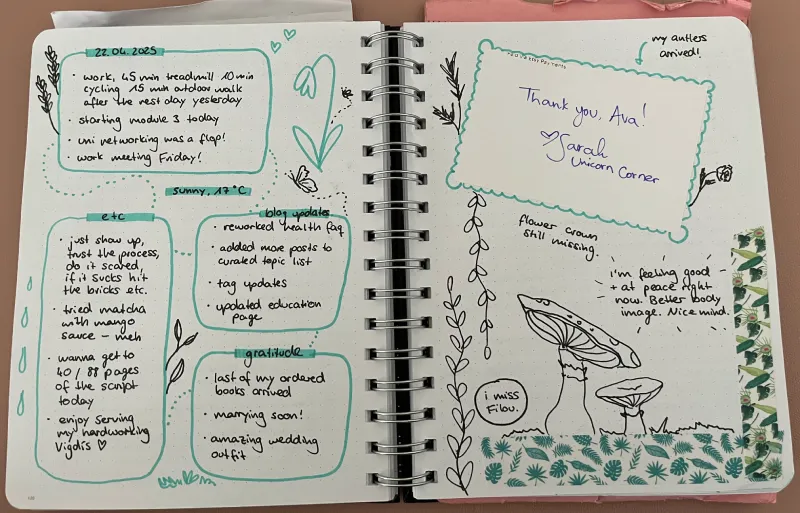 22.04.2025
• work, 45 min treadmill 10 min
cycling 15 min outdoor walk
after the rest day yesterday
• starting module 3 today
• uni networking was a flop!
• work meeting Friday!
sunny, 17°C
etc
• just show up,
trust the process,
do it scared,
if it sucks hit
the bricks etc.
• tried matcha
with mango
sauce – meh
• wanna get to
40/88 pages
of the script
today
• enjoy serving
my hardworking
Vigdis ♡
blog updates
• reworked health faq
• added more posts to
curated topic list
• tag updates
• updated education
page
gratitude
• last of my ordered
books arrived
• marrying soon!
• amazing wedding
outfit
my antlers
arrived!
Thank you, Ava!
♡Sarah
Unicorn Corner
flower crown
still missing.
i'm feeling good
+ at peace right
now. Better body
image. Nice mind.
i miss
Filou.